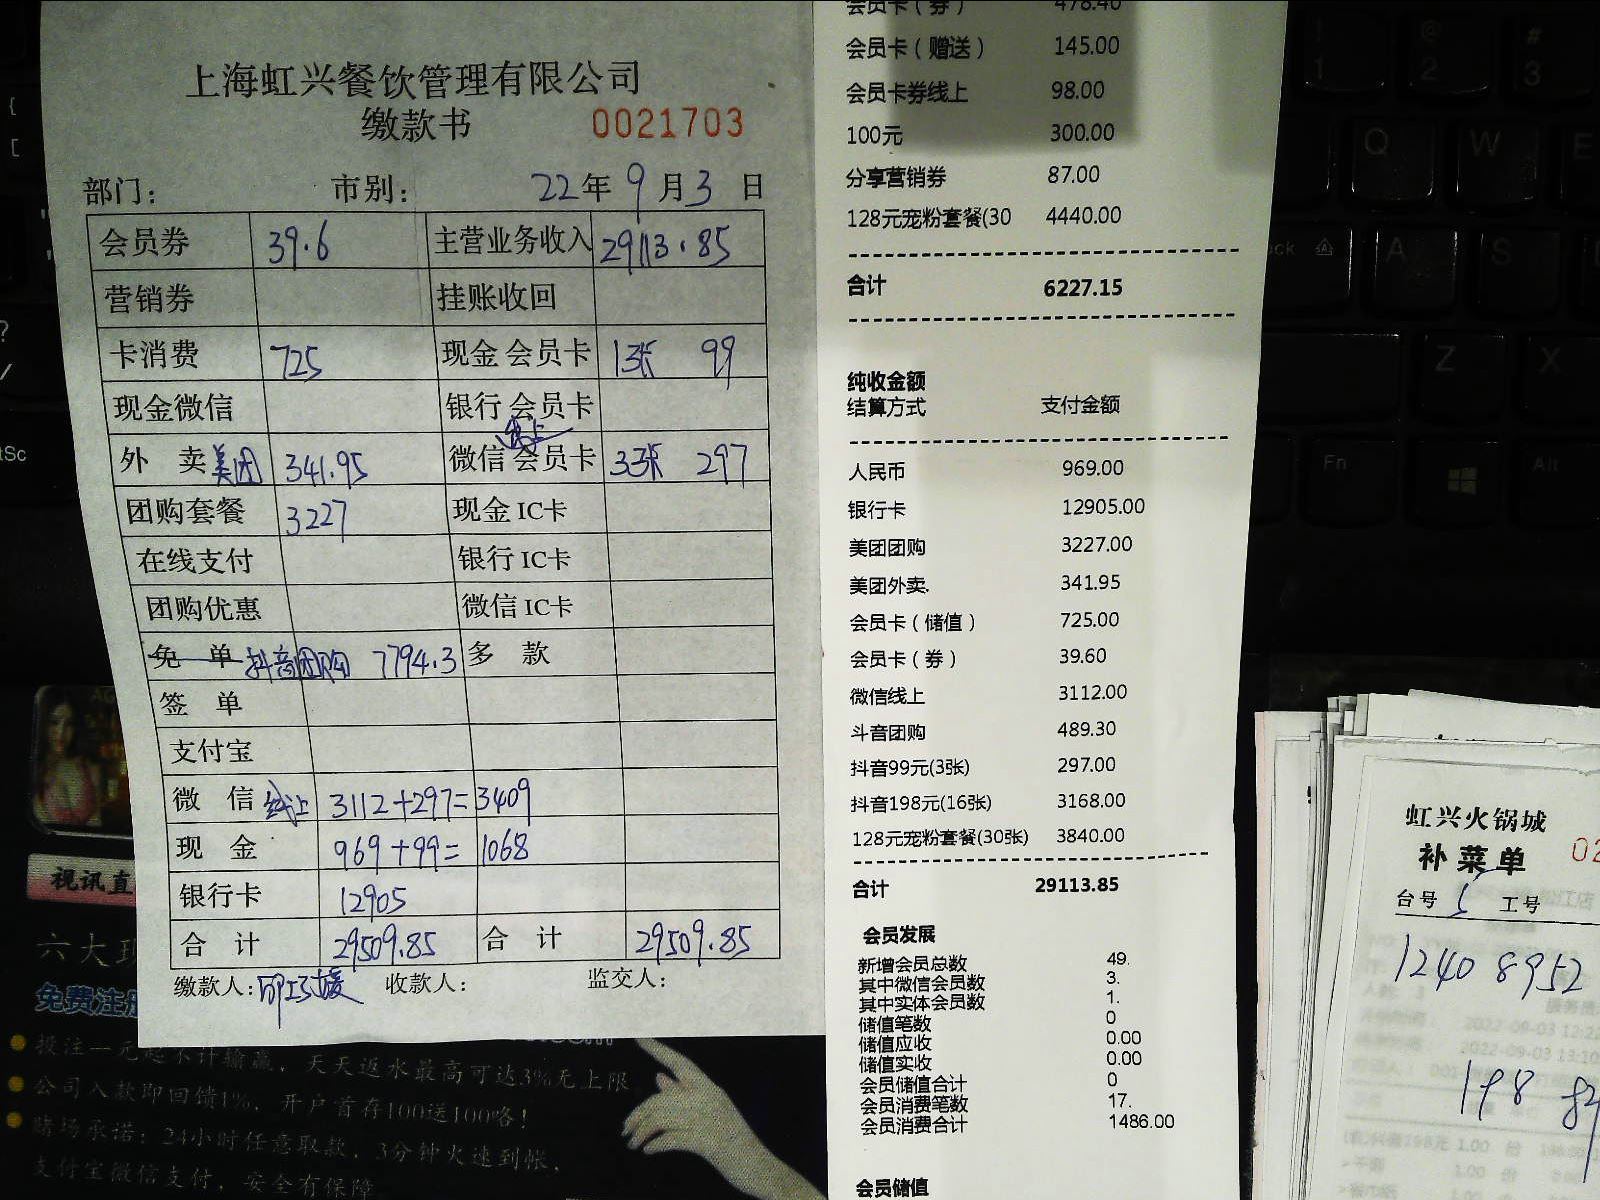 上海虹兴餐饮管理有限公司
缴款书 0021703
部门： 市别： 22年9月3日
会员券 39.6 主营业务收入 29113.85
营销券 挂账收回
卡消费 725 现金会员卡 1张 99
现金微信 银行会员卡
外卖美团 341.95 微信线上会员卡 3张 297
团购套餐 3227 现金IC卡
在线支付 银行IC卡
团购优惠 微信IC卡
免单 抖音团购 7794.3 多款
签单
支付宝
微信线上 3112+297=3409
现金 969+99=1068
银行卡 12905
合计 29509.85 合计 29509.85
缴款人： 收款人： 监交人：
会员卡（券） 478.40
会员卡（赠送） 145.00
会员卡券线上 98.00
100元 300.00
分享营销券 87.00
128元宠粉套餐(30 4440.00
合计 6227.15
纯收金额
结算方式 支付金额
人民币 969.00
银行卡 12905.00
美团团购 3227.00
美团外卖. 341.95
会员卡（储值） 725.00
会员卡（券） 39.60
微信线上 3112.00
斗音团购 489.30
抖音99元(3张) 297.00
抖音198元(16张) 3168.00
128元宠粉套餐(30张) 3840.00
合计 29113.85
会员发展
新增会员总数 49.
其中微信会员数 3.
其中实体会员数 1.
储值笔数 0
储值应收 0.00
储值实收 0.00
会员储值合计 0
会员消费笔数 17.
会员消费合计 1486.00
会员储值
虹兴火锅城
补菜单 02
台号 5 工号
1240 8952
198
2022-09-03 13:10
视讯直
六大
免费注册
投注一元起不计输赢，天天返水最高可达3%无上限
公司入款即回馈1%，开户首存100送100咯！
赌场承诺：24小时任意取款，3分钟火速到帐，
支付宝微信支付，安全有保障
1
@
2
#
3
Q
W
E
A
S
Z
X
Fn
Alt
tSc